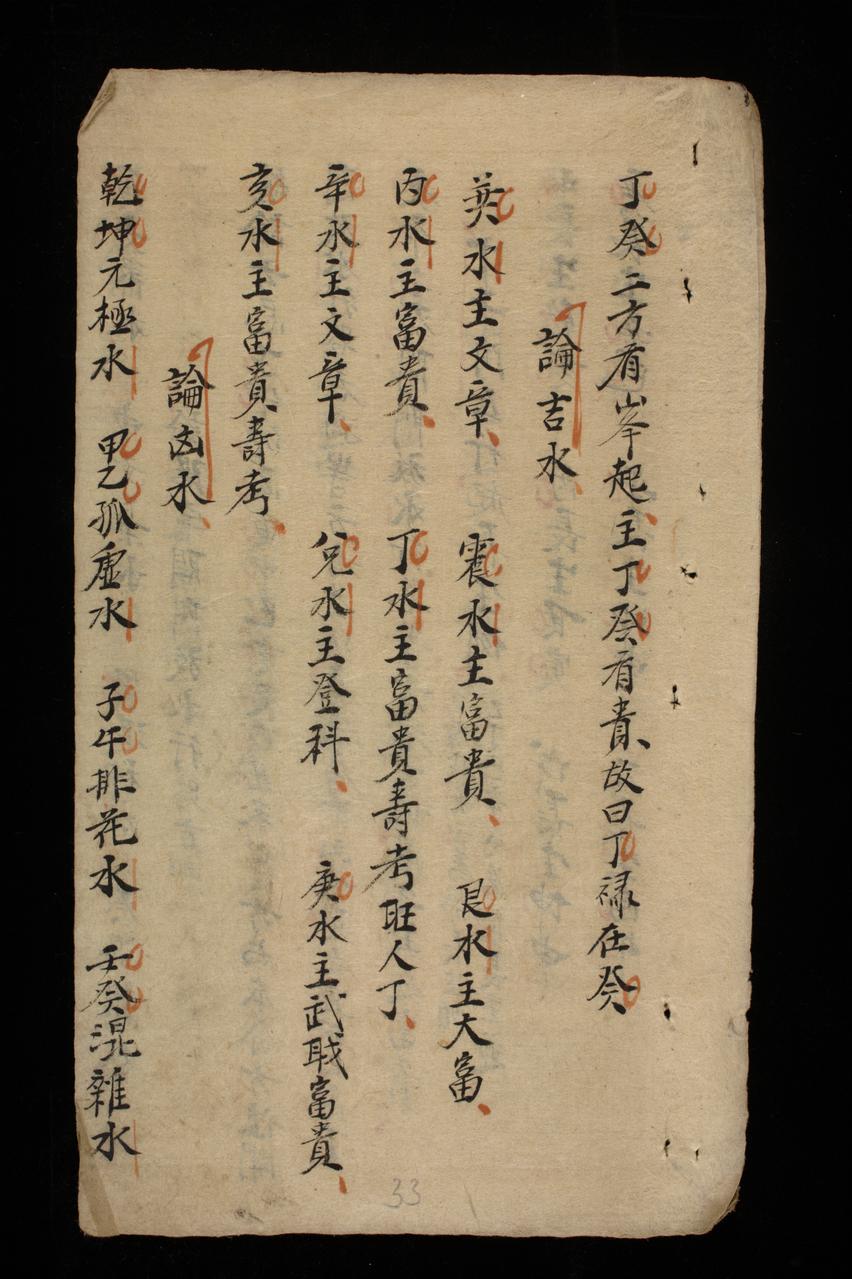 丁癸二方有峯起主丁癸有貴故曰丁祿在癸
論吉水
巽水主文章 震水主富貴 艮水主大富
丙水主富貴 丁水主富貴壽考旺人丁
辛水主文章 兌水主登科 庚水主武職富貴
亥水主富貴壽考
論凶水
乾坤元極水 甲乙孤虛水 子午排花水 壬癸混雜水
33